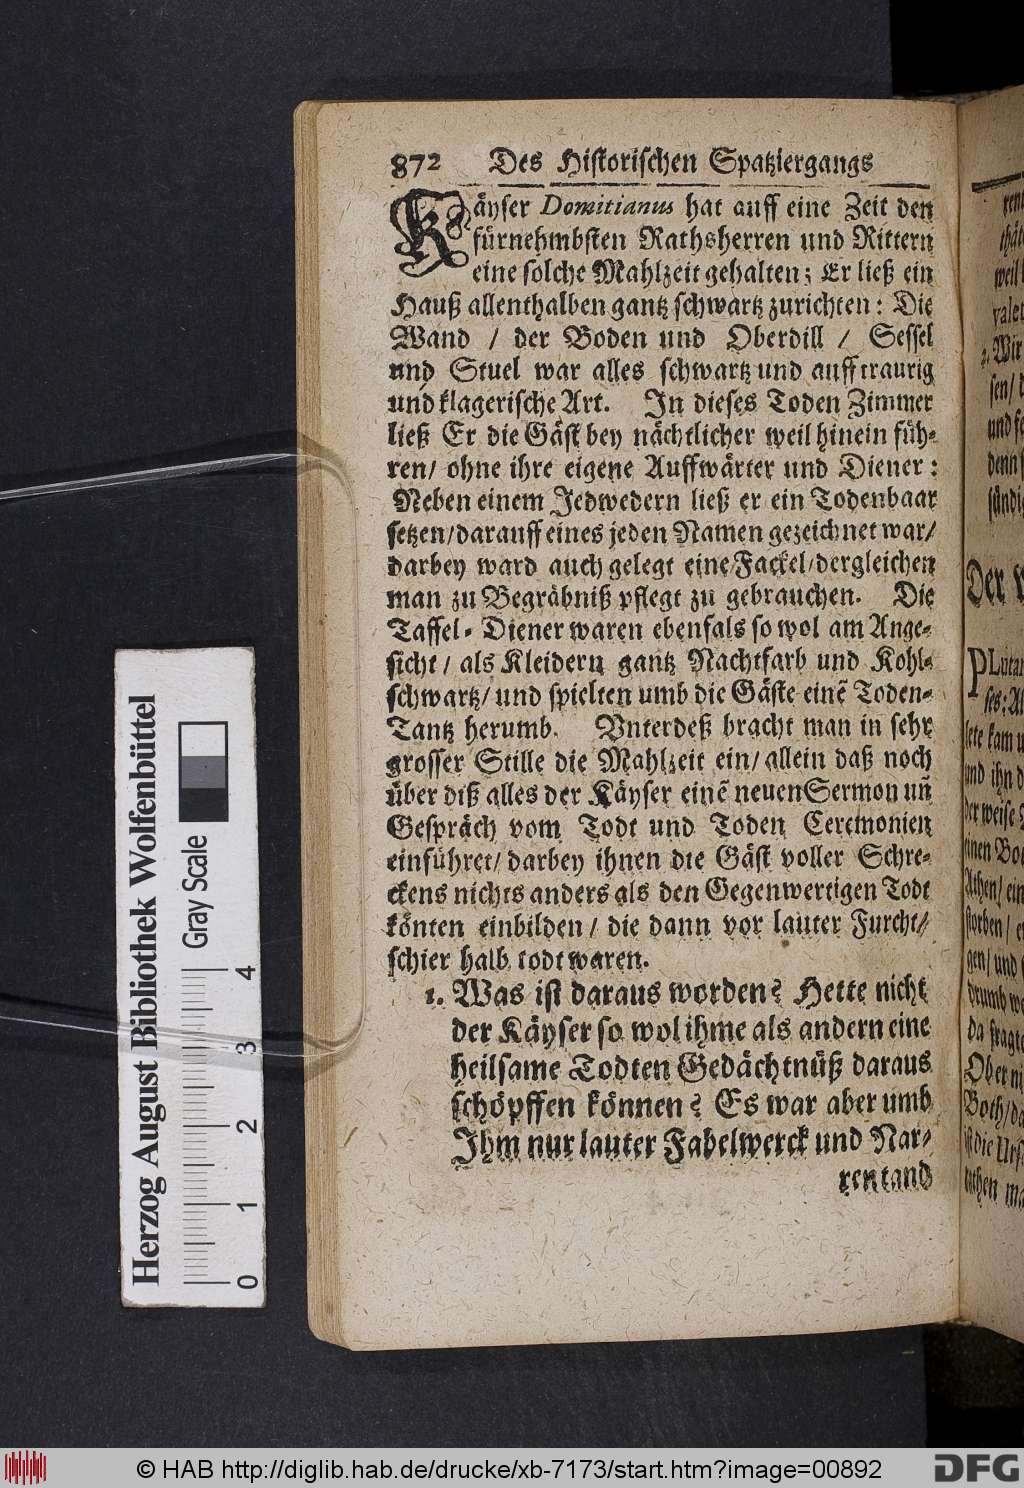 872 Des Historischen Spatziergangs
Käyser Domitianus hat auff eine Zeit den
fürnehmbsten Rathsherren und Rittern
eine solche Mahlzeit gehalten; Er ließ ein
Hauß allenthalben gantz schwartz zurichten: Die
Wand / der Boden und Oberdill / Sessel
und Stuel war alles schwartz und auff traurig
und klagerische Art. In dieses Toden Zimmer
ließ Er die Gäst bey nächtlicher weil hinein füh-
ren/ ohne ihre eigene Auffwärter und Diener:
Neben einem Jedwedern ließ er ein Todenbaar
setzen/darauff eines jeden Namen gezeichnet war/
darbey ward auch gelegt eine Fackel/dergleichen
man zu Begräbniß pflegt zu gebrauchen. Die
Taffel-Diener waren ebenfals so wol am Ange-
sicht / als Kleidern gantz Nachtfarb und Kohl-
schwartz/ und spielten umb die Gäste einẽ Toden-
Tantz herumb. Vnterdeß bracht man in sehr
grosser Stille die Mahlzeit ein/ allein daß noch
über diß alles der Käyser einẽ neuen Sermon uñ
Gespräch vom Todt und Toden Ceremonien
einführet/ darbey ihnen die Gäst voller Schre-
ckens nichts anders als den Gegenwertigen Todt
könten einbilden / die dann vor lauter Furcht/
schier halb todt waren.
1. Was ist daraus worden? Hette nicht
der Käyser so wol ihme als andern eine
heilsame Todten Gedächtnüß daraus
schöpffen können? Es war aber umb
Ihm nur lauter Fabelwerck und Nar-
rentand
valet
2. Wir
sen/
und
denn
Der
PLutar
lete kam
und ihn
der weise
einen
Athen/ ein
storben/
gen/ und
drumb
da fragte
Ober
Both/
ist die
rathen
Herzog August Bibliothek Wolfenbüttel
Gray Scale
0 1 2 3 4
© HAB http://diglib.hab.de/drucke/xb-7173/start.htm?image=00892
DFG